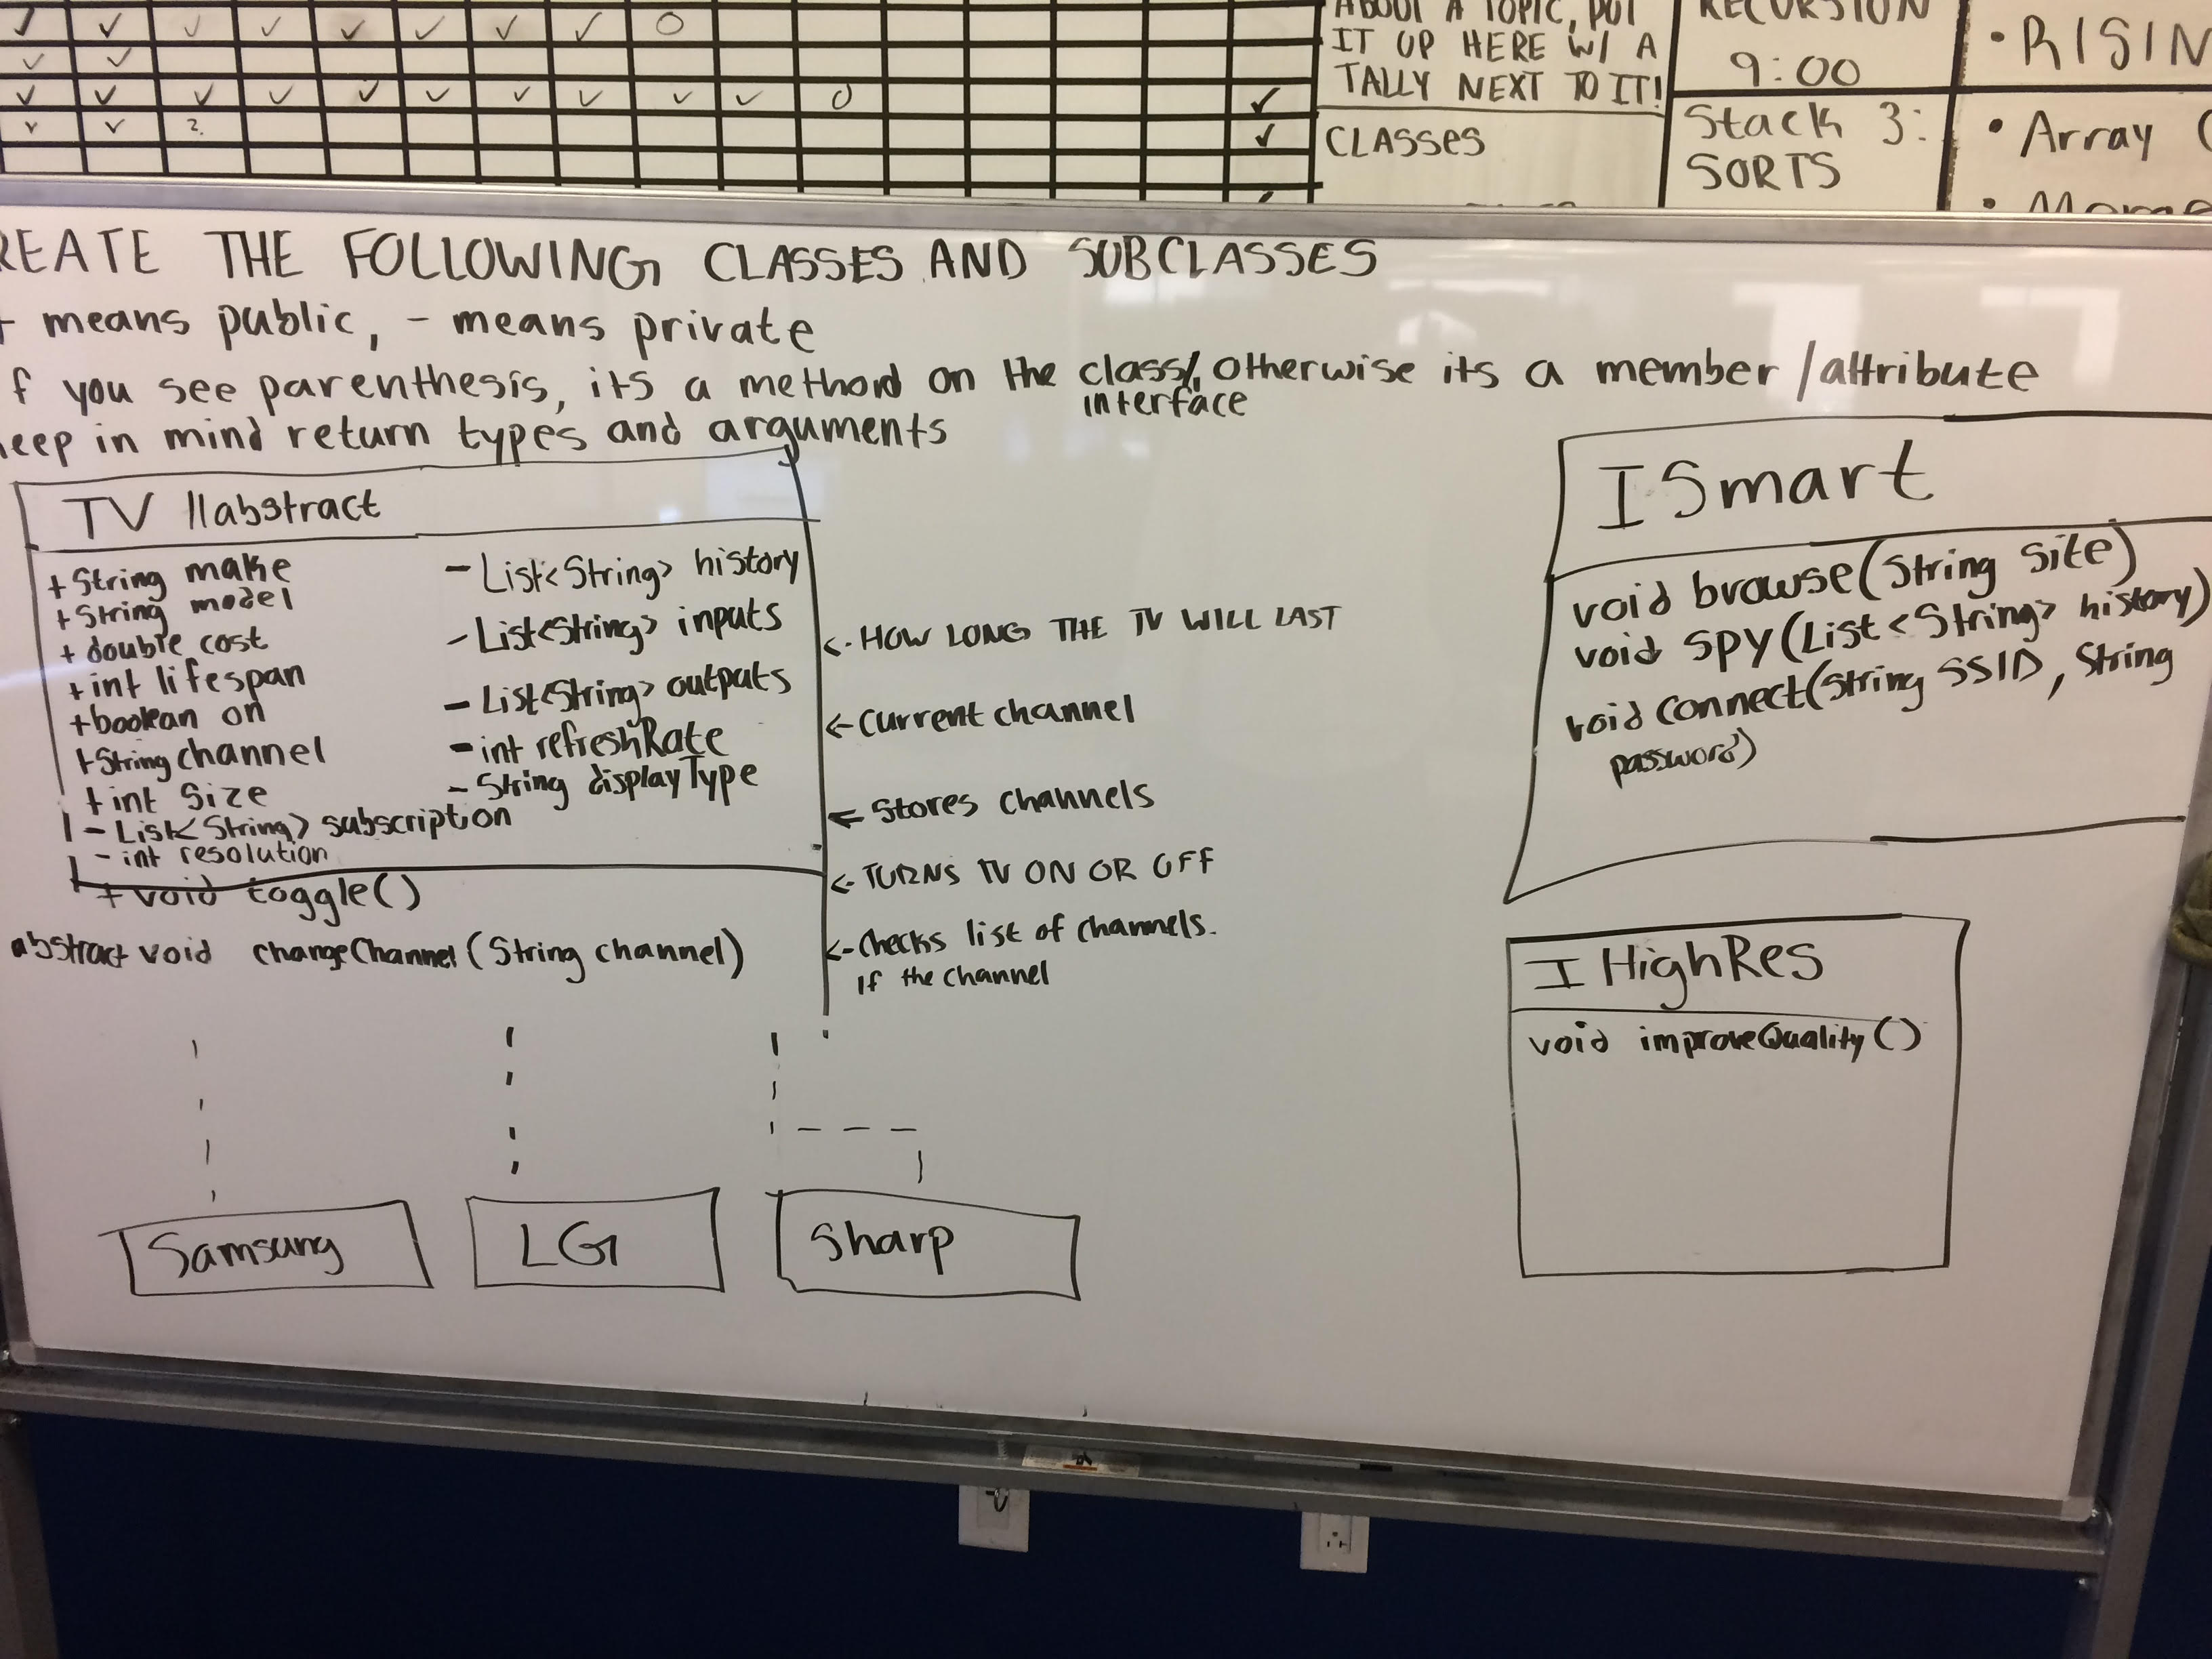 ABOUT A TOPIC, PUT
IT UP HERE W/ A
TALLY NEXT TO IT!
CLASSES
RECURSION
9:00
Stack 3:
SORTS
• RISIN
• Array (
REATE THE FOLLOWING CLASSES AND SUBCLASSES
+ means public, - means private
f you see parenthesis, its a method on the class/, otherwise its a member/attribute
interface
eep in mind return types and arguments
TV //abstract
+String make
+String model
+ double cost
+int lifespan
+boolean on
+String channel
+int size
- List<String> subscription
- int resolution
- List<String> history
- List<String> inputs
- List<String> outputs
- int refreshRate
- String displayType
+ void toggle()
abstract void changeChannel (String channel)
<- HOW LONG THE TV WILL LAST
<- Current channel
<- Stores channels
<- TURNS TV ON OR OFF
<- Checks list of channels.
if the channel
Samsung
LG
Sharp
ISmart
void browse(String site)
void spy(List<String> history)
void connect(String SSID, String
password)
IHighRes
void improveQuality()